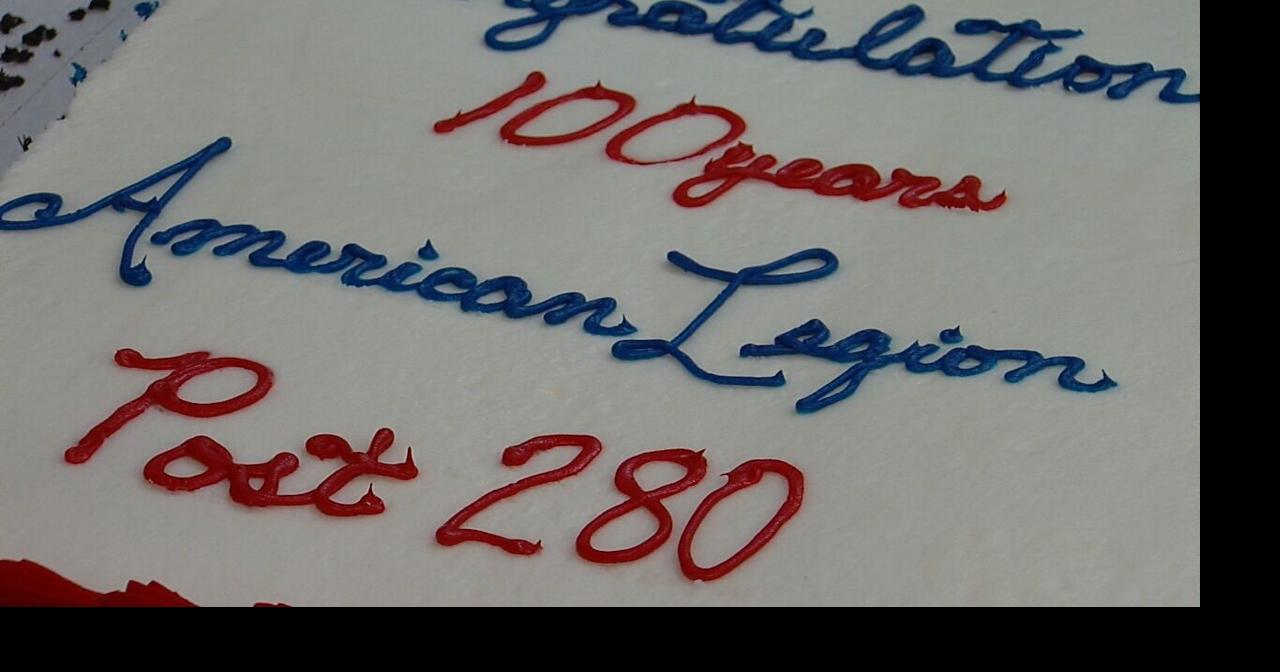 ngratulation
100 years
American Legion
Post 280